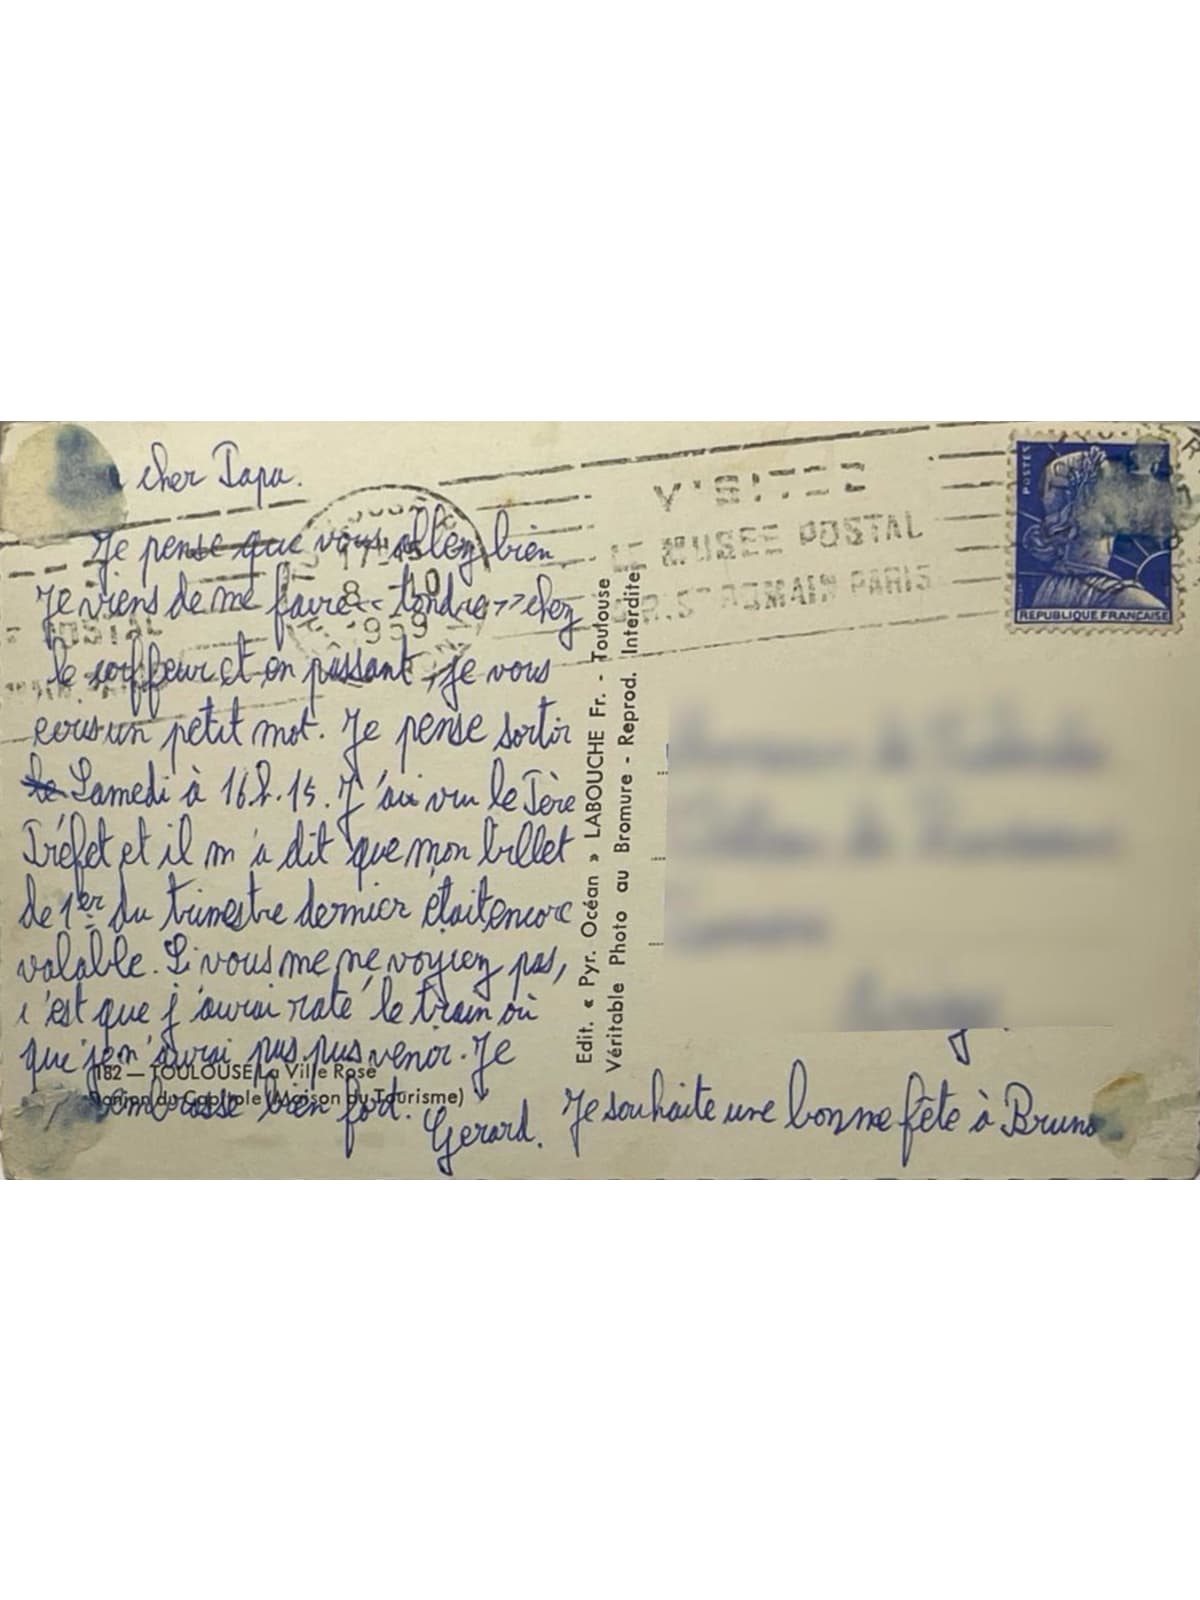 cher Papa.
Je pense que vous allez bien
Je viens de me faire << tondre >> chez
le coiffeur et en passant, je vous
écris un petit mot. Je pense sortir
le Samedi à 16 h. 15. J'ai vu le Père
Préfet et il m'a dit que mon billet
de 1er du trimestre dernier était encore
valable. Si vous me ne voyiez pas,
c'est que j'aurai raté le train où
que je n'aurai pas pus venir. Je
embrasse bien fort.
Gerard.
Je souhaite une bonne fête à Bruno
182 — TOULOUSE La Ville Rose
Donjon du Capitole (Maison du Tourisme)
Edit. « Pyr. Océan » LABOUCHE Fr. - Toulouse
Véritable Photo au Bromure - Reprod. Interdite
17H45
8 - 10
1959
VISITEZ
LE MUSEE POSTAL
4.R.ST ROMAIN PARIS
POSTAL
POSTES
REPUBLIQUE FRANÇAISE